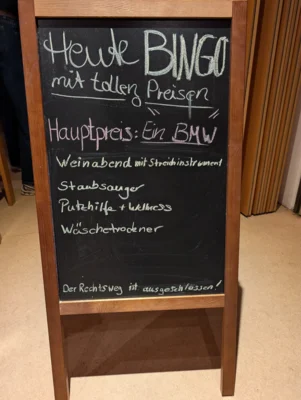 Heute BINGO
mit tollen Preisen
Hauptpreis: Ein BMW
Weinabend mit Streichinstrument
Staubsauger
Putzhilfe + Wellness
Wäschetrockner
Der Rechtsweg ist ausgeschlossen!